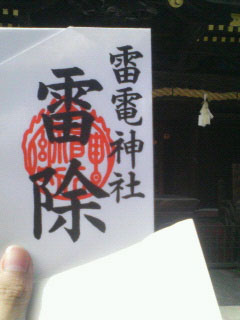 雷電神社
雷除